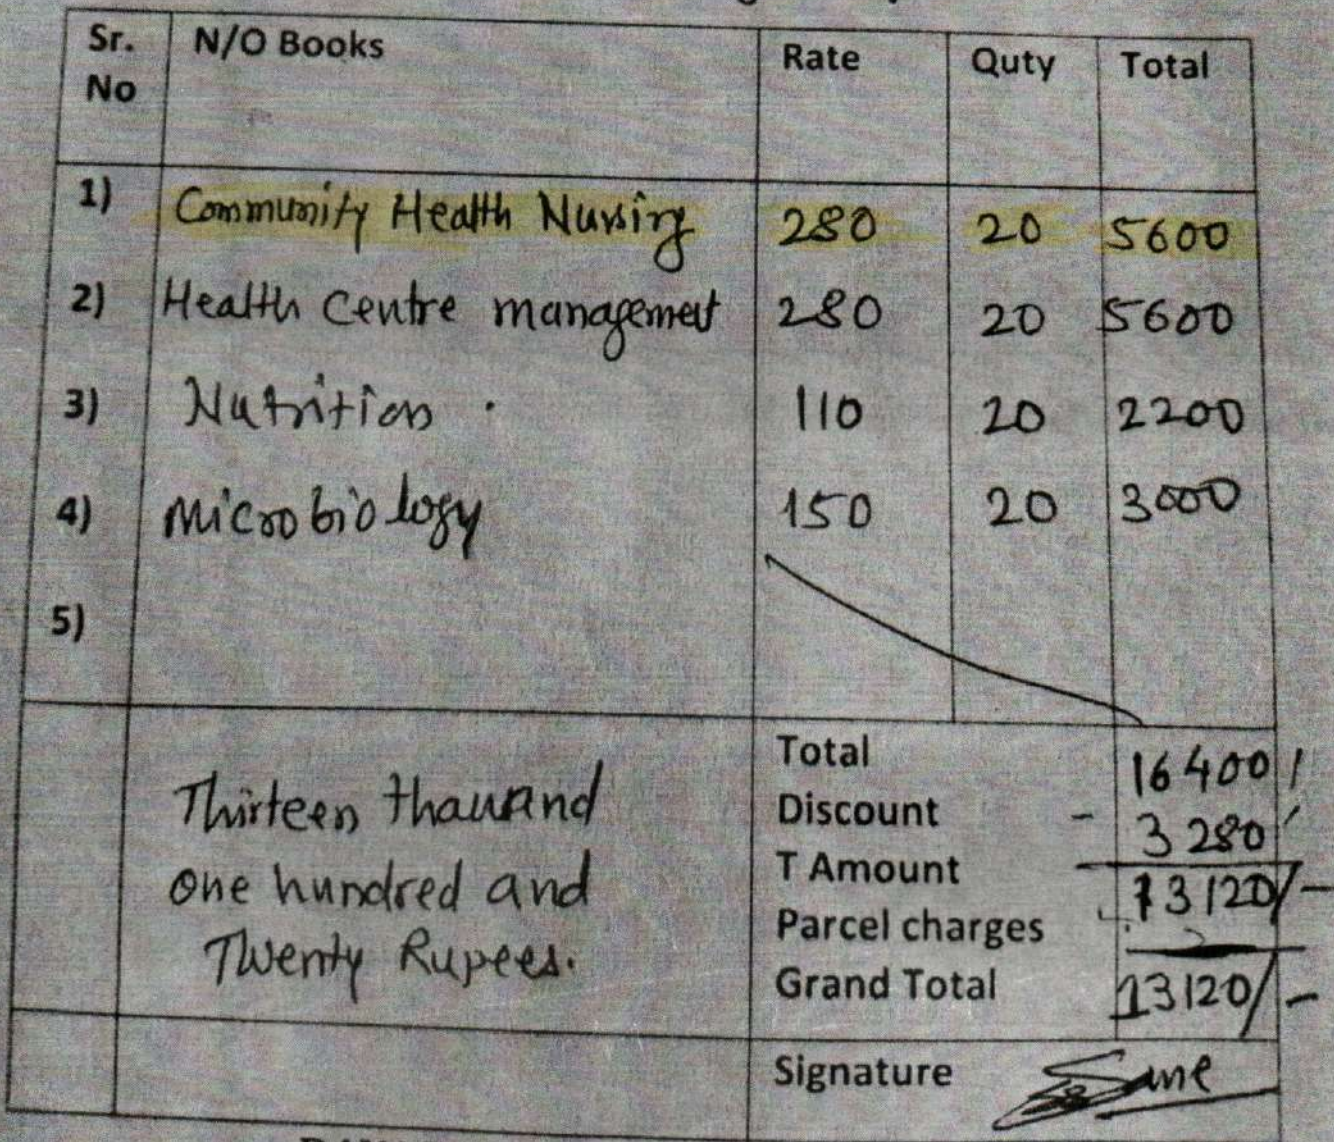 Sr. No N/O Books Rate Quty Total
1) Community Health Nursing 280 20 5600
2) Health Centre management 280 20 5600
3) Nutrition . 110 20 2200
4) Microbiology 150 20 3000
5)
Thirteen thousand
one hundred and
Twenty Rupees.
Total 16400/
Discount - 3280/
T Amount 13120/-
Parcel charges
Grand Total 13120/-
Signature